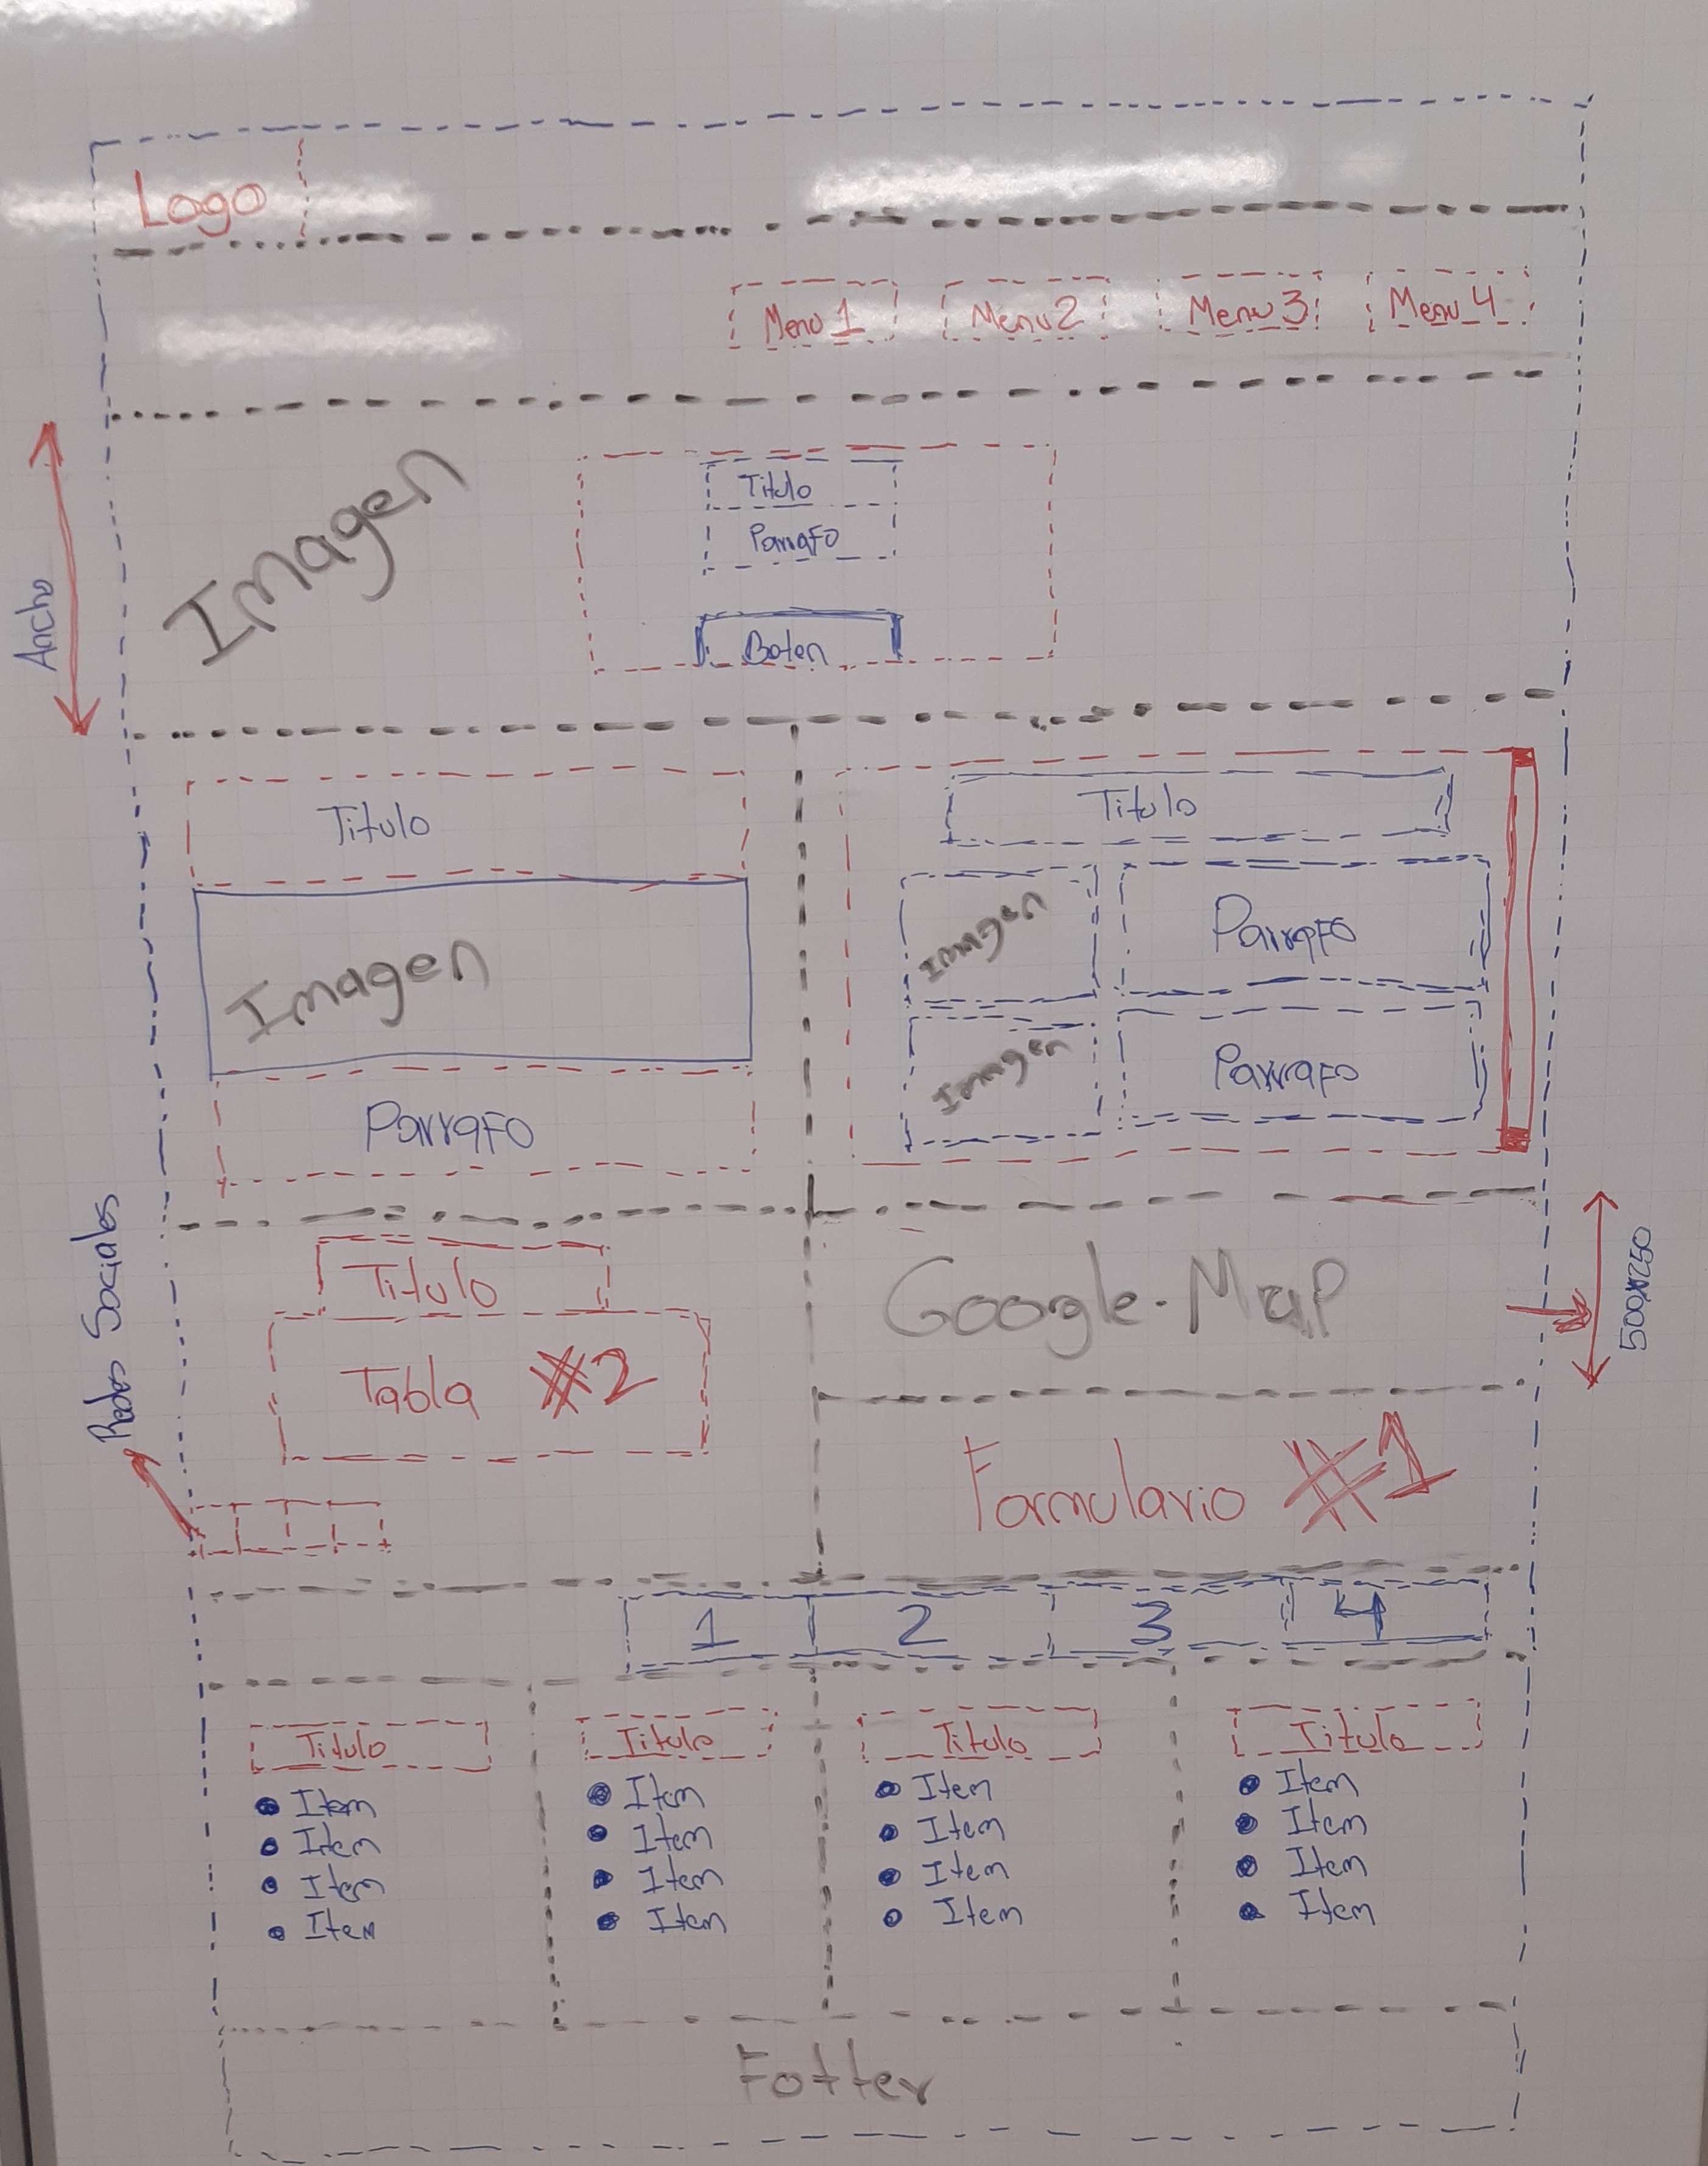 Logo
Menu 1 Menu 2 Menu 3 Menu 4
Ancho
Imagen
Titulo
Parrafo
Boten
Titulo
Imagen
Parrafo
Titulo
Imagen Parrafo
Imagen Parrafo
Redes Sociales
Titulo
Tabla #2
Google-Map
500x250
Formulario #1
1 2 3 4
Titulo
Item
Item
Item
Item
Titulo
Item
Item
Item
Item
Titulo
Item
Item
Item
Item
Titulo
Item
Item
Item
Item
Fotter